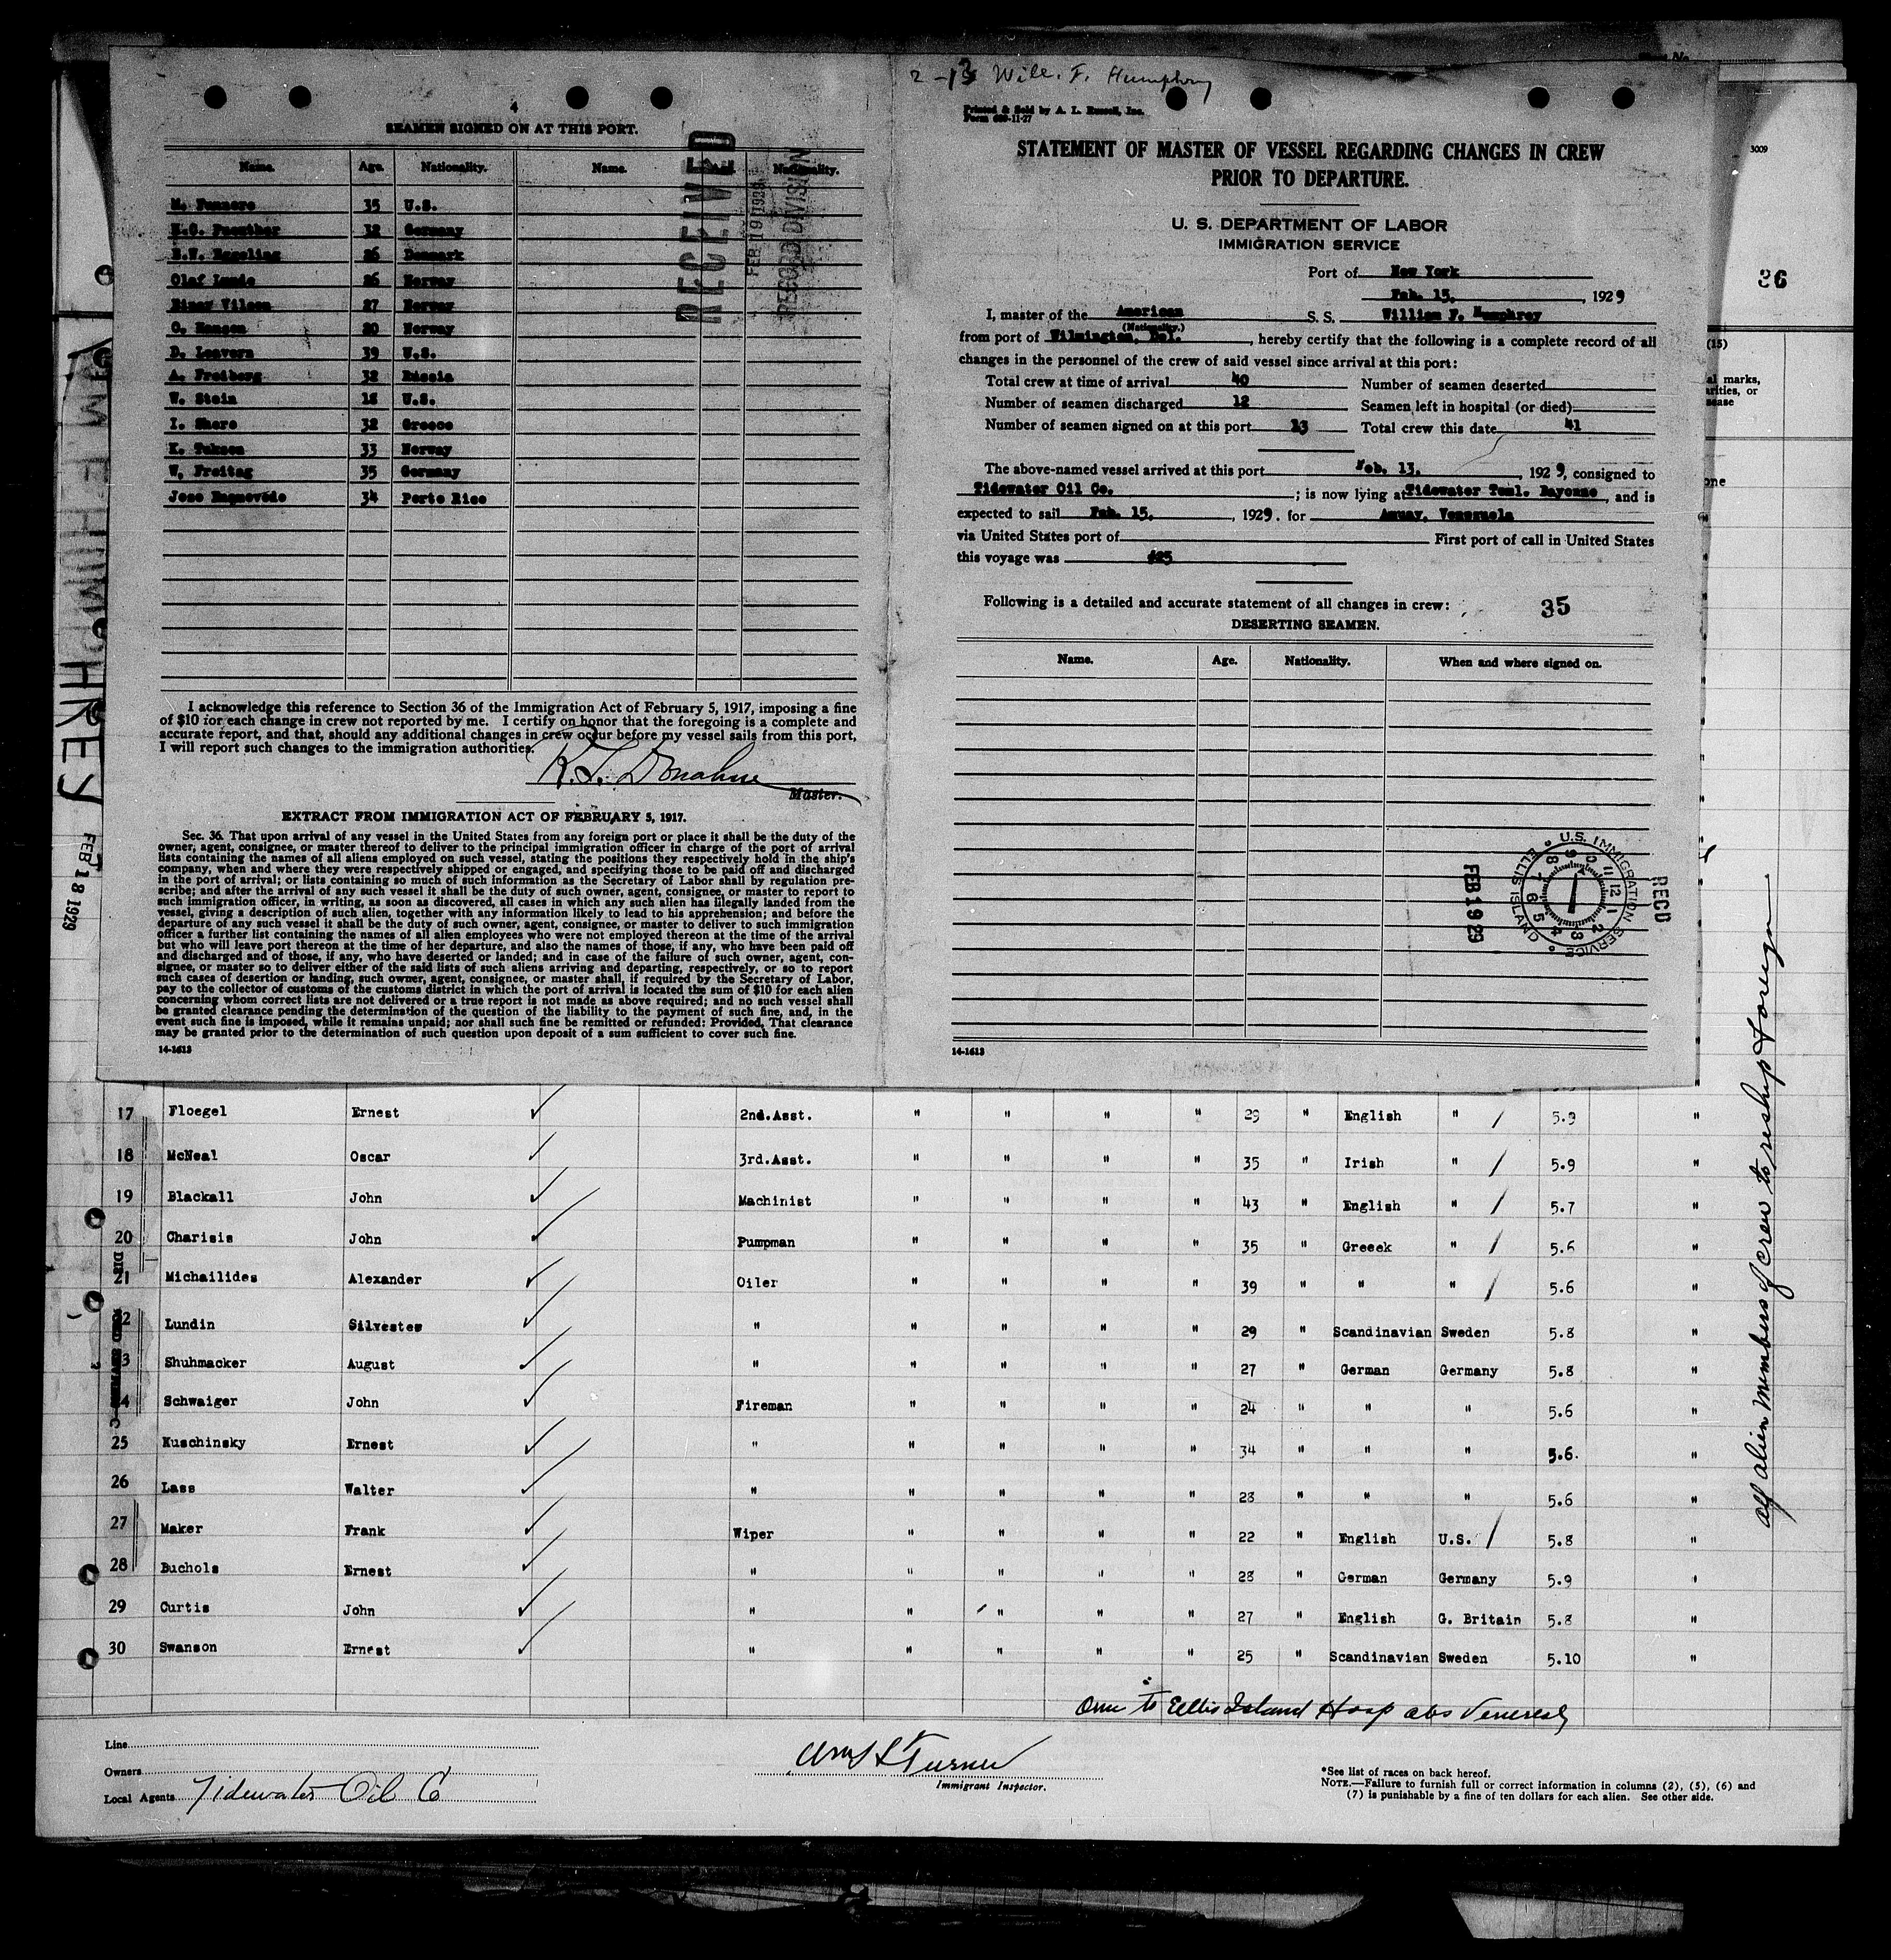 4
SEAMEN SIGNED ON AT THIS PORT.
Name. Age. Nationality. Name. Nationality.
M. 35 U.S.
32 Germany
26 Denmark
Olaf Lunde 26 Norway
27 Norway
O. Hansen 20 Norway
D. 39 U.S.
A. Freiberg 32 Russia
W. Stein 18 U.S.
I. 32 Greece
K. 33 Norway
W. Freitag 35 Germany
Jose 34 Porto Rico
RECEIVED
FEB 19 1929
RECORD DIVISION
I acknowledge this reference to Section 36 of the Immigration Act of February 5, 1917, imposing a fine
of $10 for each change in crew not reported by me. I certify on honor that the foregoing is a complete and
accurate report, and that, should any additional changes in crew occur before my vessel sails from this port,
I will report such changes to the immigration authorities.
Master.
EXTRACT FROM IMMIGRATION ACT OF FEBRUARY 5, 1917.
Sec. 36. That upon arrival of any vessel in the United States from any foreign port or place it shall be the duty of the
owner, agent, consignee, or master thereof to deliver to the principal immigration officer in charge of the port of arrival
lists containing the names of all aliens employed on such vessel, stating the positions they respectively hold in the ship's
company, when and where they were respectively shipped or engaged, and specifying those to be paid off and discharged
in the port of arrival; or lists containing so much of such information as the Secretary of Labor shall by regulation pre-
scribe; and after the arrival of any such vessel it shall be the duty of such owner, agent, consignee, or master to report to
such immigration officer, in writing, as soon as discovered, all cases in which any such alien has illegally landed from the
vessel, giving a description of such alien, together with any information likely to lead to his apprehension; and before the
departure of any such vessel it shall be the duty of such owner, agent, consignee, or master to deliver to such immigration
officer a further list containing the names of all alien employees who were not employed thereon at the time of the arrival
but who will leave port thereon at the time of her departure, and also the names of those, if any, who have been paid off
and discharged and of those, if any, who have deserted or landed; and in case of the failure of such owner, agent, con-
signee, or master so to deliver either of the said lists of such aliens arriving and departing, respectively, or so to report
such cases of desertion or landing, such owner, agent, consignee, or master shall, if required by the Secretary of Labor,
pay to the collector of customs of the customs district in which the port of arrival is located the sum of $10 for each alien
concerning whom correct lists are not delivered or a true report is not made as above required; and no such vessel shall
be granted clearance pending the determination of the question of the liability to the payment of such fine, and, in the
event such fine is imposed, while it remains unpaid; nor shall such fine be remitted or refunded: Provided, That clearance
may be granted prior to the determination of such question upon deposit of a sum sufficient to cover such fine.
14-1613
2-13 Will. F. Humphrey
Printed & Sold by A. L. Russell, Inc.
STATEMENT OF MASTER OF VESSEL REGARDING CHANGES IN CREW
PRIOR TO DEPARTURE.
U. S. DEPARTMENT OF LABOR
IMMIGRATION SERVICE
Port of New York
Feb. 15, 1929
I, master of the American S. S. William F. Humphrey
(Nationality.)
from port of Wilmington, Del., hereby certify that the following is a complete record of all
changes in the personnel of the crew of said vessel since arrival at this port:
Total crew at time of arrival 40 Number of seamen deserted
Number of seamen discharged 12 Seamen left in hospital (or died)
Number of seamen signed on at this port 13 Total crew this date 41
The above-named vessel arrived at this port Feb. 13, 1929, consigned to
Tidewater Oil Co.; is now lying at Tidewater Teml. Bayonne, and is
expected to sail Feb. 15, 1929. for Amuay, Venezuela
via United States port of First port of call in United States
this voyage was
Following is a detailed and accurate statement of all changes in crew: 35
DESERTING SEAMEN.
Name. Age. Nationality. When and where signed on.
RECD
U.S. IMMIGRATION SERVICE ELLIS ISLAND
FEB 19 29
14-1613
3009
36
(15)
FEB 18 1929
17 Floegel Ernest 2nd.Asst. " " " " 29 " English " 5.9 "
18 McNeal Oscar 3rd.Asst. " " " " 35 " Irish " 5.9 "
19 Blackall John Machinist " " " " 43 " English " 5.7 "
20 Charisis John Pumpman " " " " 35 " Greeek " 5.6 "
21 Michailides Alexander Oiler " " " " 39 " " " 5.6 "
Lundin Silvester " " " " " 29 " Scandinavian Sweden 5.8 "
3 Shuhmacker August " " " " " 27 " German Germany 5.8 "
4 Schwaiger John Fireman " " " " 24 " " " 5.6 "
25 Kuschinsky Ernest " " " " " 34 " " " 5.6. "
26 Lass Walter " " " " " 28 " " " 5.6 "
27 Maker Frank Wiper " " " " 22 " English U.S. 5.8 "
28 Buchols Ernest " " " " " 28 " German Germany 5.9 "
29 Curtis John " " " " " 27 " English G. Britain 5.8 "
30 Swanson Ernest " " " " " 25 " Scandinavian Sweden 5.10 "
All alien members of crew to reship foreign
One to Ellis Island Hosp
Line
Owners
Local Agents Tidewater Oil Co
Turner
Immigrant Inspector.
*See list of races on back hereof.
NOTE.—Failure to furnish full or correct information in columns (2), (5), (6) and
(7) is punishable by a fine of ten dollars for each alien. See other side.